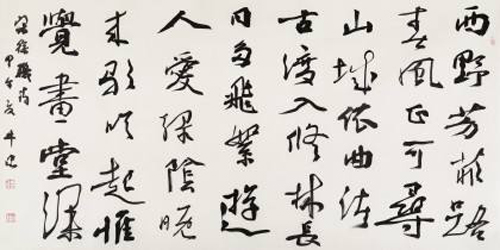 西野芳菲路
春風正可尋
山城依曲渚
古渡入修林長
日多飛絮遊
人愛綠陰晚
來歌吹起惟
覺畫堂深
徐璣詩
甲午夏